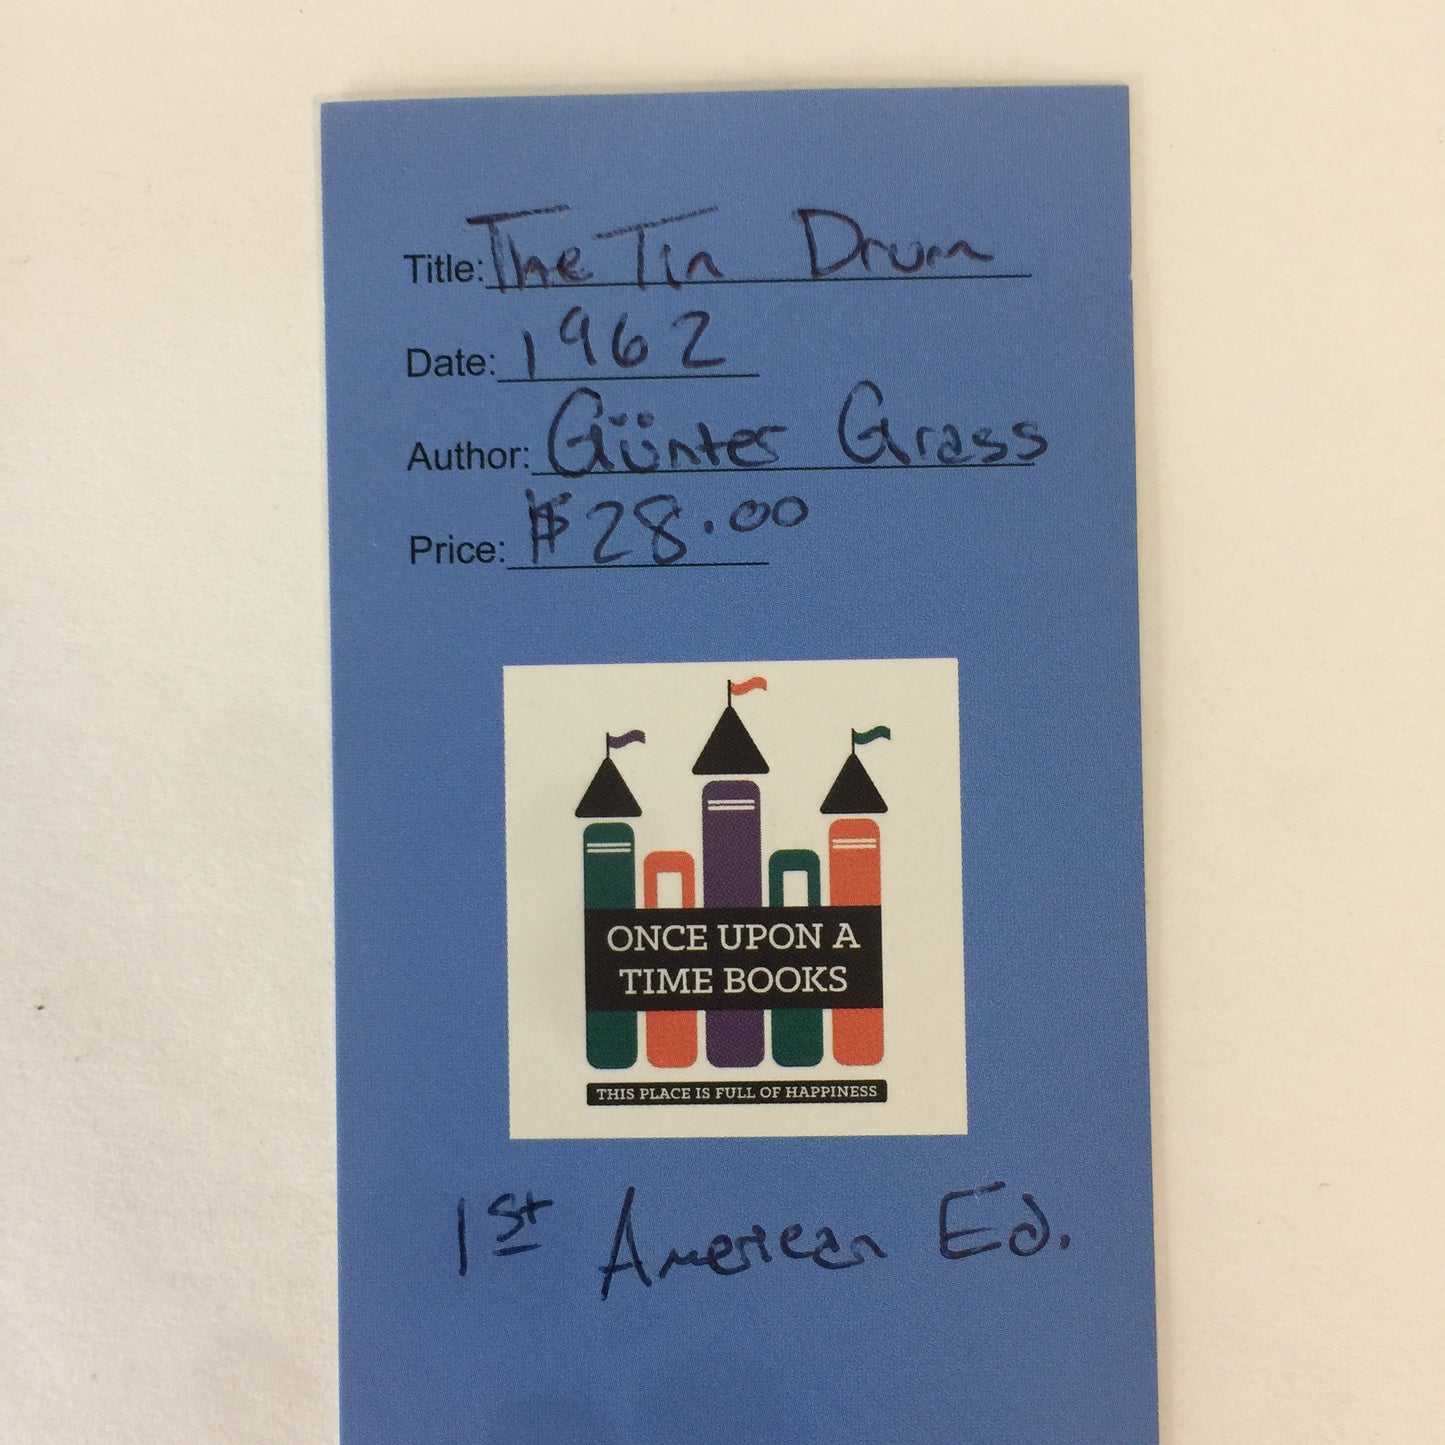 Title: The Tin Drum
Date: 1962
Author: Günter Grass
Price: $28.00
ONCE UPON A
TIME BOOKS
THIS PLACE IS FULL OF HAPPINESS
1st American Ed.